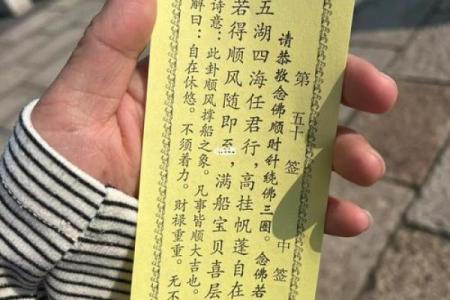 第五十签 中签
请恭敬念佛顺时针绕佛三圈。念佛若
五湖四海任君行,高挂帆蓬自在
若得顺风随即至,满船宝贝喜层
诗意:此卦顺风撑船之象。凡事皆顺大吉也。
解曰:自在休悠。不须着力。财禄重重。无不